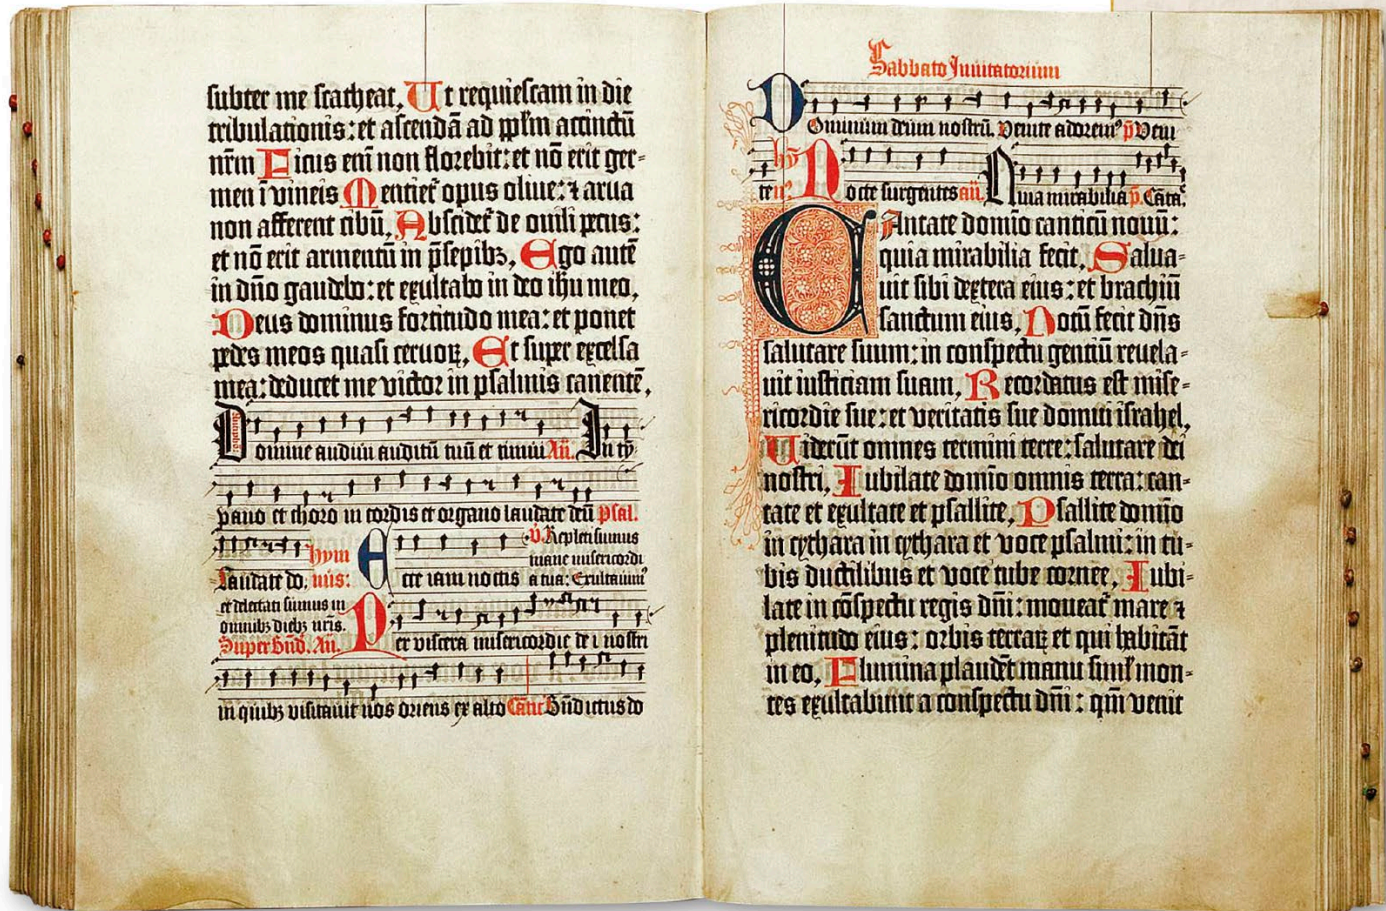 subter me scatheat, Ut requiescam in die
tribulationis: et ascendā ad pp̄lm accinctū
nr̄m Ficus eni̅ non florebit: et nō erit ger-
men ī vineis Mentiet᷑ opus olive: ⁊ arua
non afferent cibū, Abscidet᷑ de ouili pecus:
et nō erit armentū in p̄sepibꝫ, Ego autē
in dn̄o gaudebo: et exultabo in deo ihu meo,
Deus dominus fortitudo mea: et ponet
pedes meos quasi ceruoꝝ, Et super excelsa
mea: deducet me victor in psalmis canentē,
Domine audiui auditū tuū et timui Añ. In tȳ-
pano et choro in cordis et organo laudate deū Psal.
Laudate do. hymnus: Ecce iam noctis
V̄. Repleti sumus
mane misericordi
a tua: Exultauim᷒
et delectati sumus in
omnibꝫ diebꝫ nr̄is.
Super Bn̄d. Añ. Per viscera misericordie dei nostri
in quibꝫ visitauit nos oriens ex alto Cātic Bn̄dictus do
Sabbato Inuitatorium
Dominum deum nostrū. Venite adorem᷒ p̄ Veni
te hȳn᷒ Nocte surgentes añ. Quia mirabilia p̄. Cāta.
CAntate domīo canticū nouū:
quia mirabilia fecit, Salua-
uit sibi dextera eius: et brachiū
sanctum eius, Notū fecit dn̄s
salutare suum: in conspectu gentiū reuela-
uit iusticiam suam, Recordatus est mise-
ricordie sue: et veritatis sue domui israhel,
Uiderūt omnes termini terre: salutare dei
nostri, Iubilate domīo omnis terra: can-
tate et exultate et psallite, Psallite domīo
in cythara in cythara et voce psalmi: in tu-
bis ductilibus et voce tube cornee, Iubi-
late in cōspectu regis dn̄i: moueat᷑ mare ⁊
plenitudo eius: orbis terraꝝ et qui habitāt
in eo, Flumina plaudēt manu siml̄ mon-
tes exultabunt a conspectu dn̄i: qm̄ venit